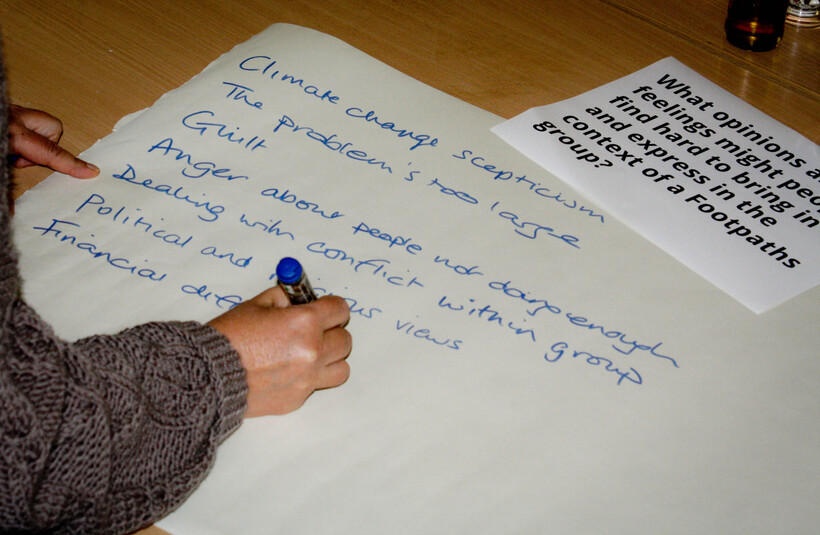 Climate change scepticism
The problem's too large
Guilt
Anger about people not doing enough
Dealing with conflict within group
Political and views
Financial
What opinions
feelings might
find hard to bring in
and express in the
context of a Footpaths
group?